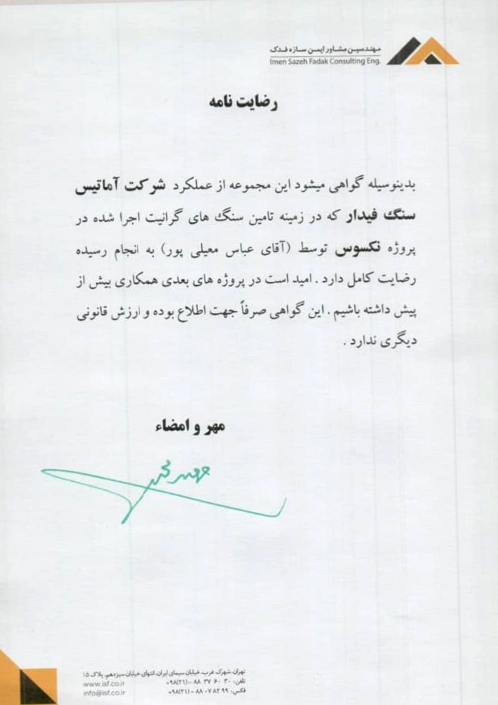 مهندسین مشاور ایمن سازه فدک
Imen Sazeh Fadak Consulting Eng.
رضایت نامه
بدینوسیله گواهی میشود این مجموعه از عملکرد شرکت آماتیس
سنگ فیدار که در زمینه تامین سنگ های گرانیت اجرا شده در
پروژه نکسوس توسط (آقای عباس معیلی پور) به انجام رسیده
رضایت کامل دارد . امید است در پروژه های بعدی همکاری بیش از
پیش داشته باشیم . این گواهی صرفاً جهت اطلاع بوده و ارزش قانونی
دیگری ندارد .
مهر و امضاء
تهران، شهرک غرب، خیابان سیمای ایران، انتهای خیابان سیزدهم، پلاک ۱۵
تلفن: ۳۰ ۶۰ ۳۷ ۸۸ -(۲۱)۹۸+
www.isf.co.ir
فکس: ۹۹ ۸۲ ۰۷ ۸۸ -(۲۱)۹۸+
info@isf.co.ir